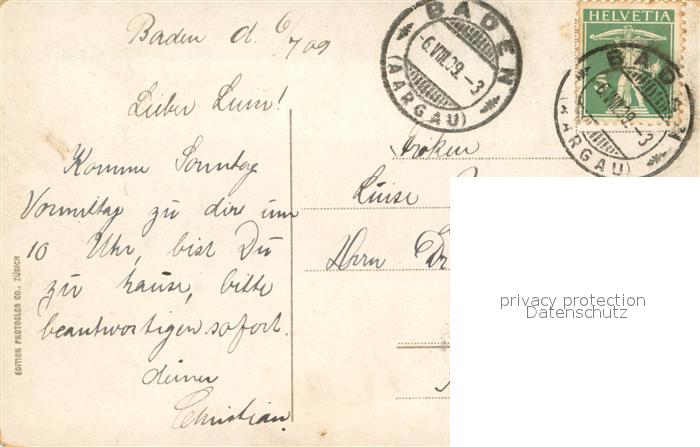 Baden d. 6/7 09
Lieber Luise!
Komme Sonntag
Vormittag zu dir um
10 Uhr, bist Du
zu hause, bitte
beantwortigen sofort.
deiner
Christian
EDITION PHOTOGLOB CO., ZÜRICH
BADEN
-6.VII.09.-3
(AARGAU)
HELVETIA
BADEN
-6.VII.09.-3
(AARGAU)
Luise
Herrn
privacy protection
Datenschutz